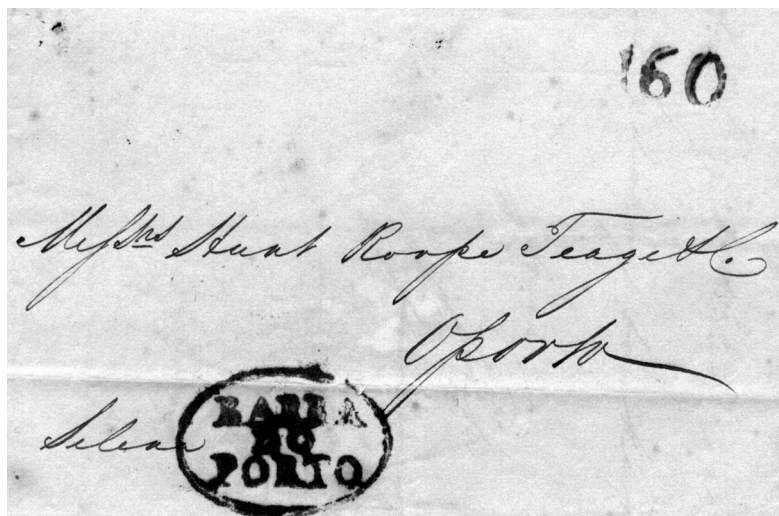 160
Messrs Hunt Roope Teage & Co
Oporto
Selena
BARRA
DO
PORTO